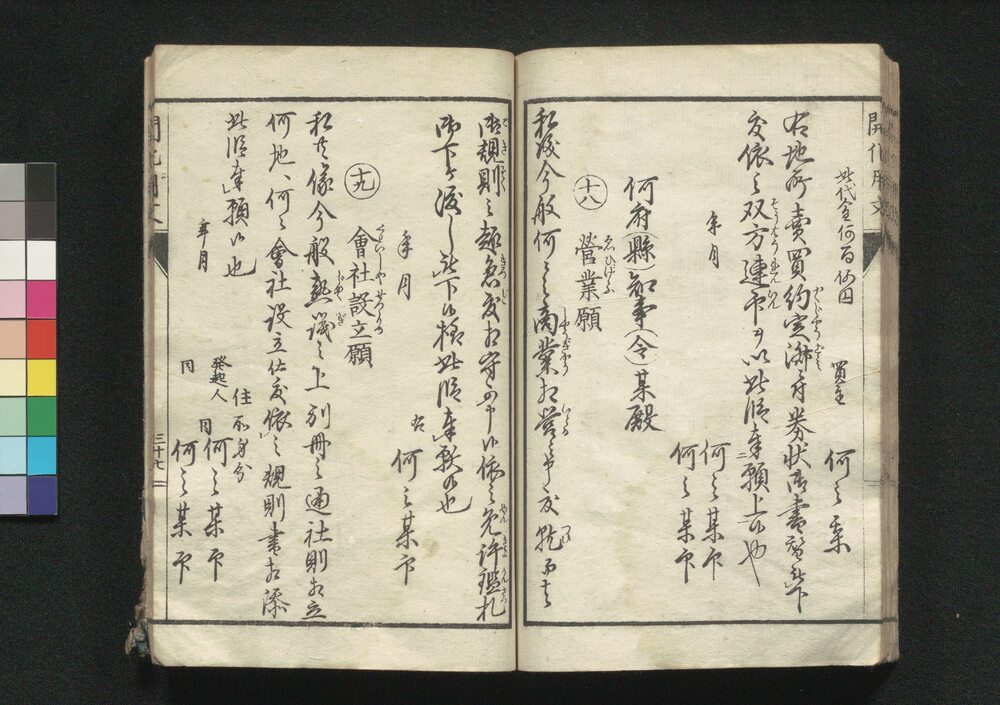 開化用文
此代金何百何円
買主
何之某
右地所賣買約定済ニ付券状御書替被下
度依之双方連印ヲ以此段奉願上候也
年月
何之某印
何之某印
何府(縣)知事(令)某殿
十八
營業願
ゑひげふ
私儀今般何之商業相營申度就而者
御規則之趣急度相守可申候依之免許鑑札
御下ケ渡し被下候様此段奉願候也
年月
右
何之某印
十九
會社設立願
私共儀今般熟議之上別冊之通社則相立
何地ヘ何之會社設立仕度依之規則書相添
此段奉願候也
年月
住所身分
発起人
何之某印
同
同
何之某印
三十七